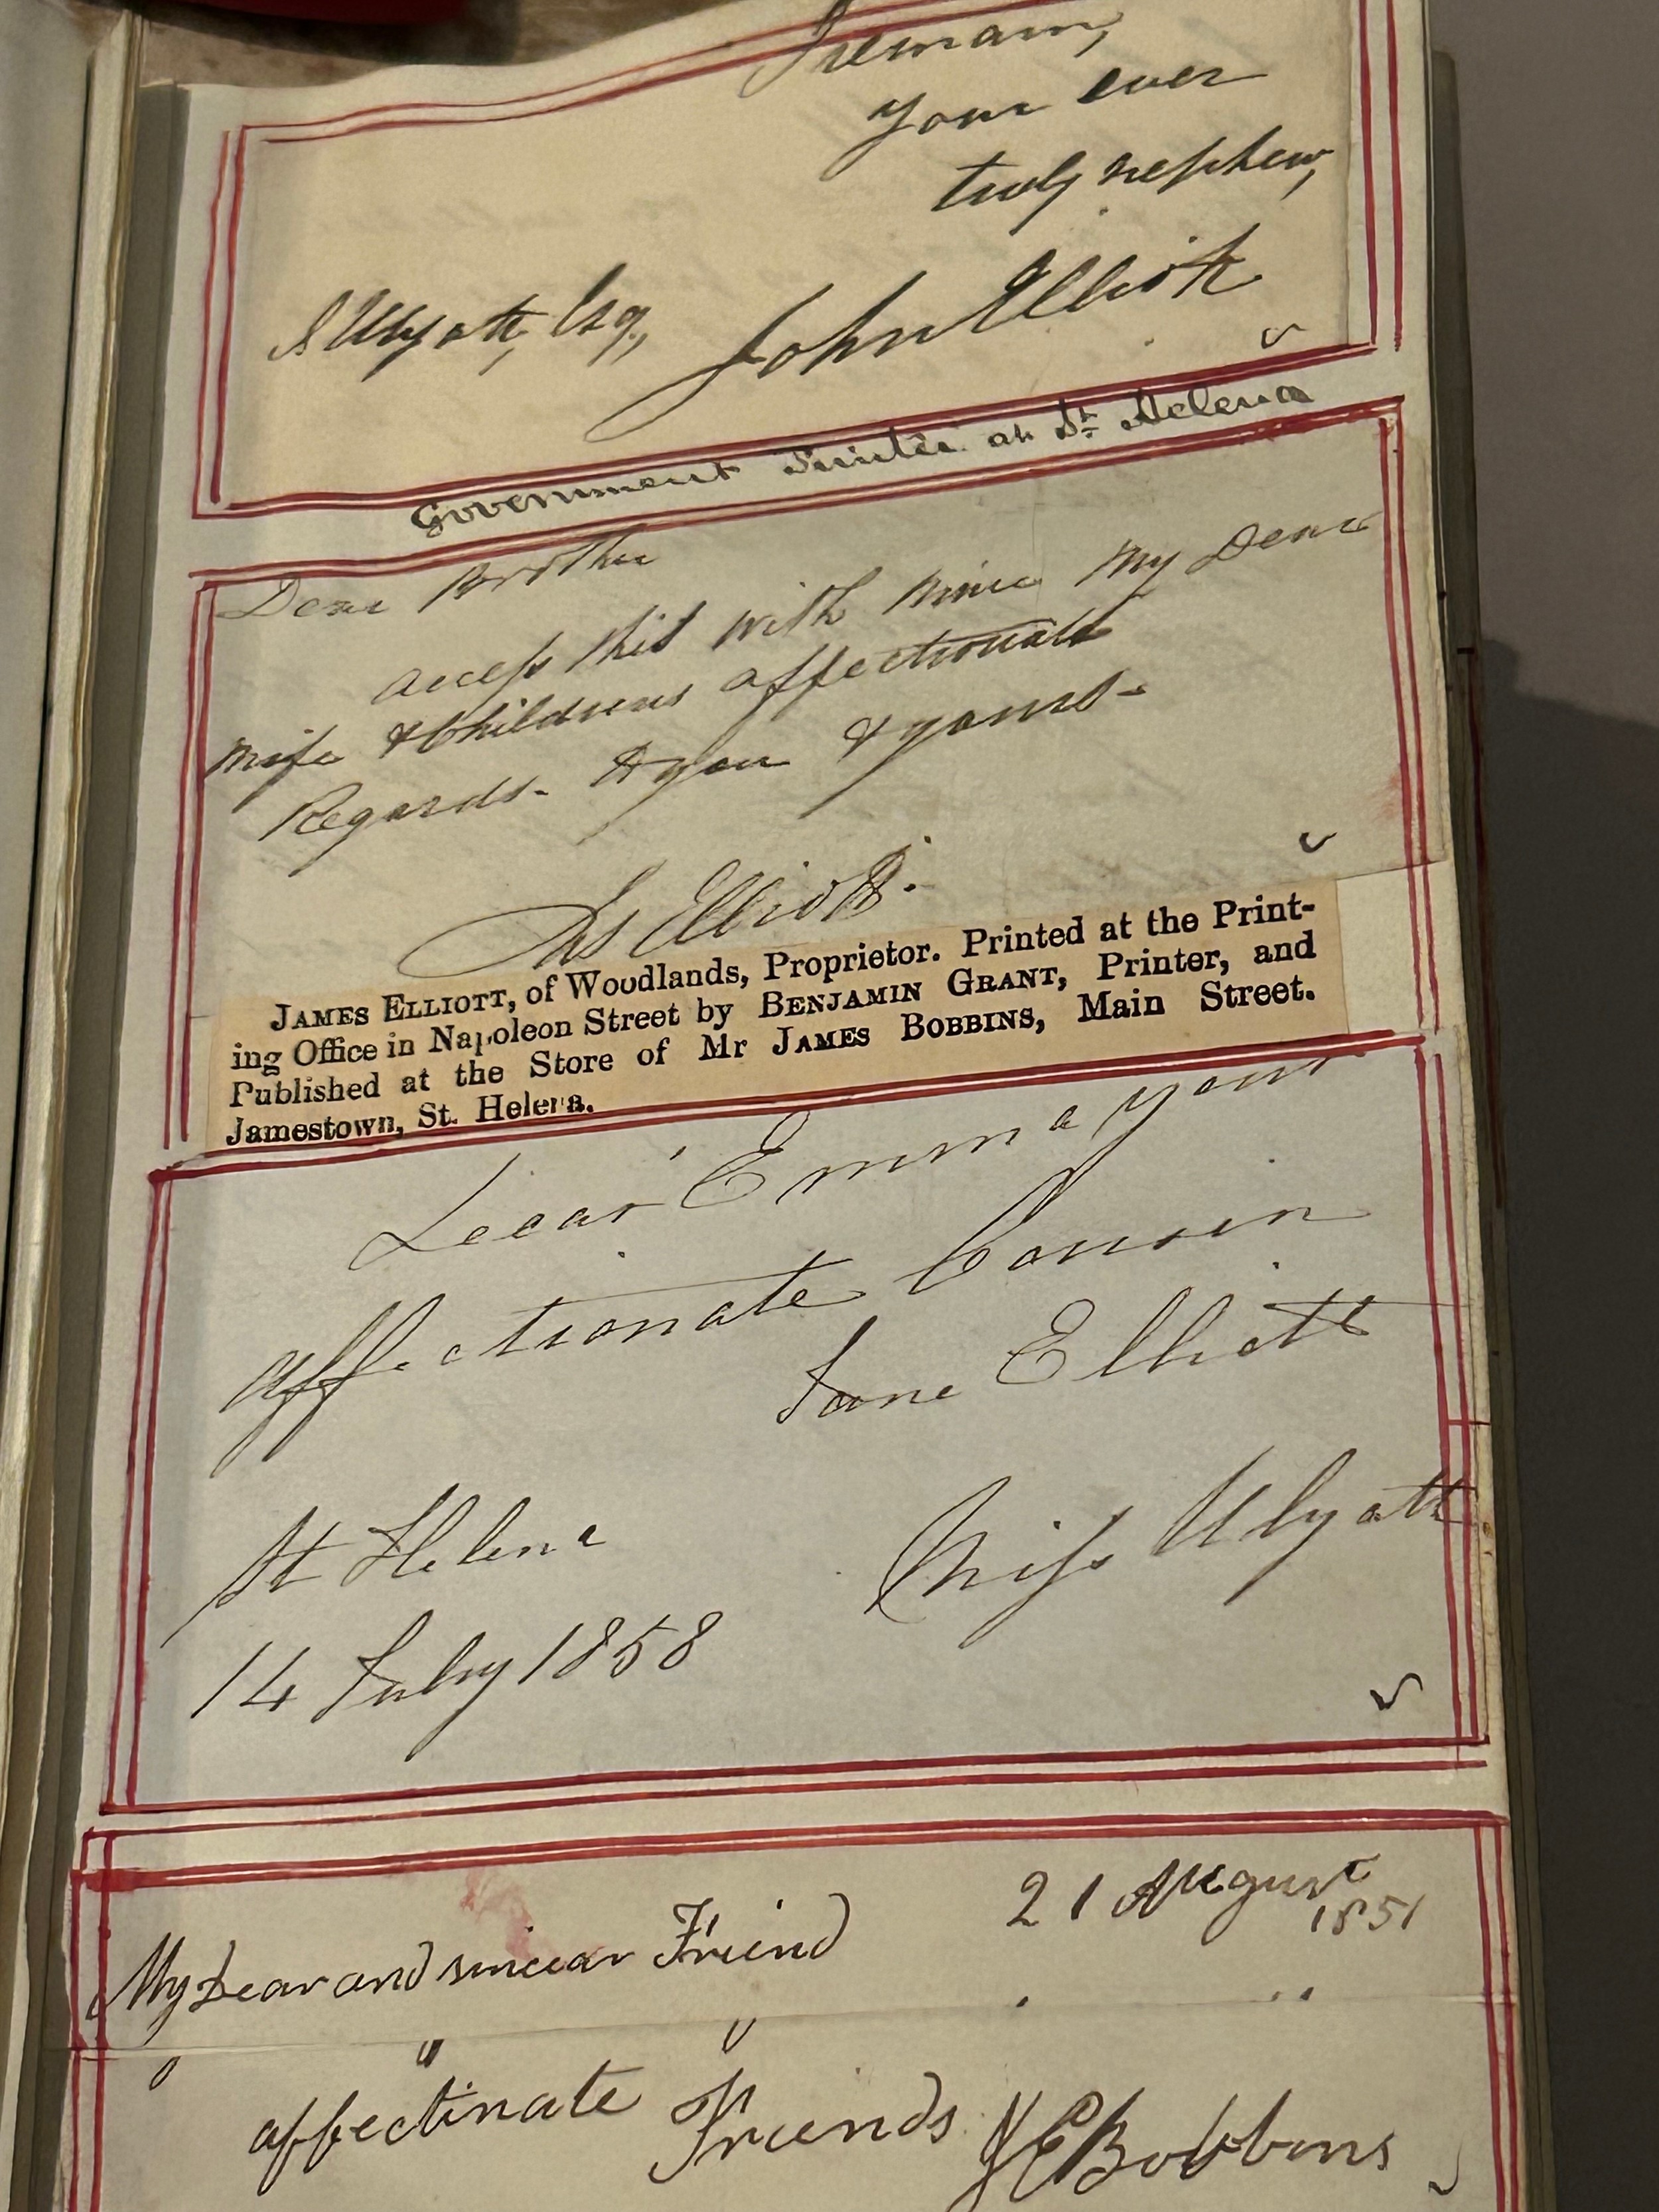 I remain,
Your ever
truly nephew,
S Ulyatt, Esq., John Elliott
Government Printer at St Helena
Dear Brother
accept this with mine My Dear
Wife & Childrens affectionate
Regards. & you & yours-
Jas Elliott.
JAMES ELLIOTT, of Woodlands, Proprietor. Printed at the Print-
ing Office in Napoleon Street by BENJAMIN GRANT, Printer, and
Published at the Store of Mr JAMES BOBBINS, Main Street.
Jamestown, St. Helena.
Dear Emma your
affectionate Cousin
Jane Elliott
St Helena Miss Ulyatt
14 July 1858
21 August
1851
My Dear and sincear Friend
affectinate Friends J C Bobbins